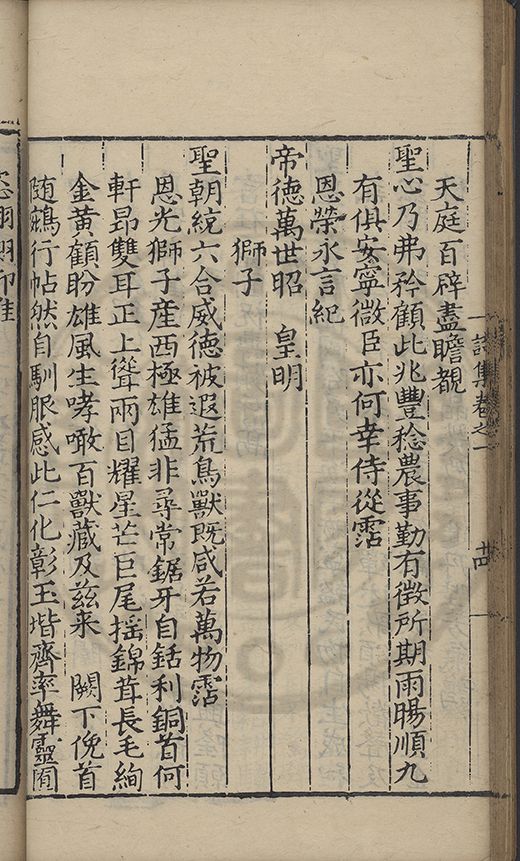 詩集卷之一
天庭百辟盡瞻覩
聖心乃弗矜顧此兆豐稔農事勤有徵所期雨暘順九
有俱安寧微臣亦何幸侍從霑
恩榮永言紀
帝德萬世昭 皇明
獅子
聖朝統六合威德被遐荒鳥獸既咸若萬物霑
恩光獅子產西極雄猛非尋常鋸牙自銛利銅首何
軒昂雙耳正上聳兩目耀星芒巨尾揺錦茸長毛絢
金黃顧盼雄風生哮噉百獸藏及兹來 闕下俛首
随鵷行帖然自馴服感此仁化彰玉堦齊率舞靈囿